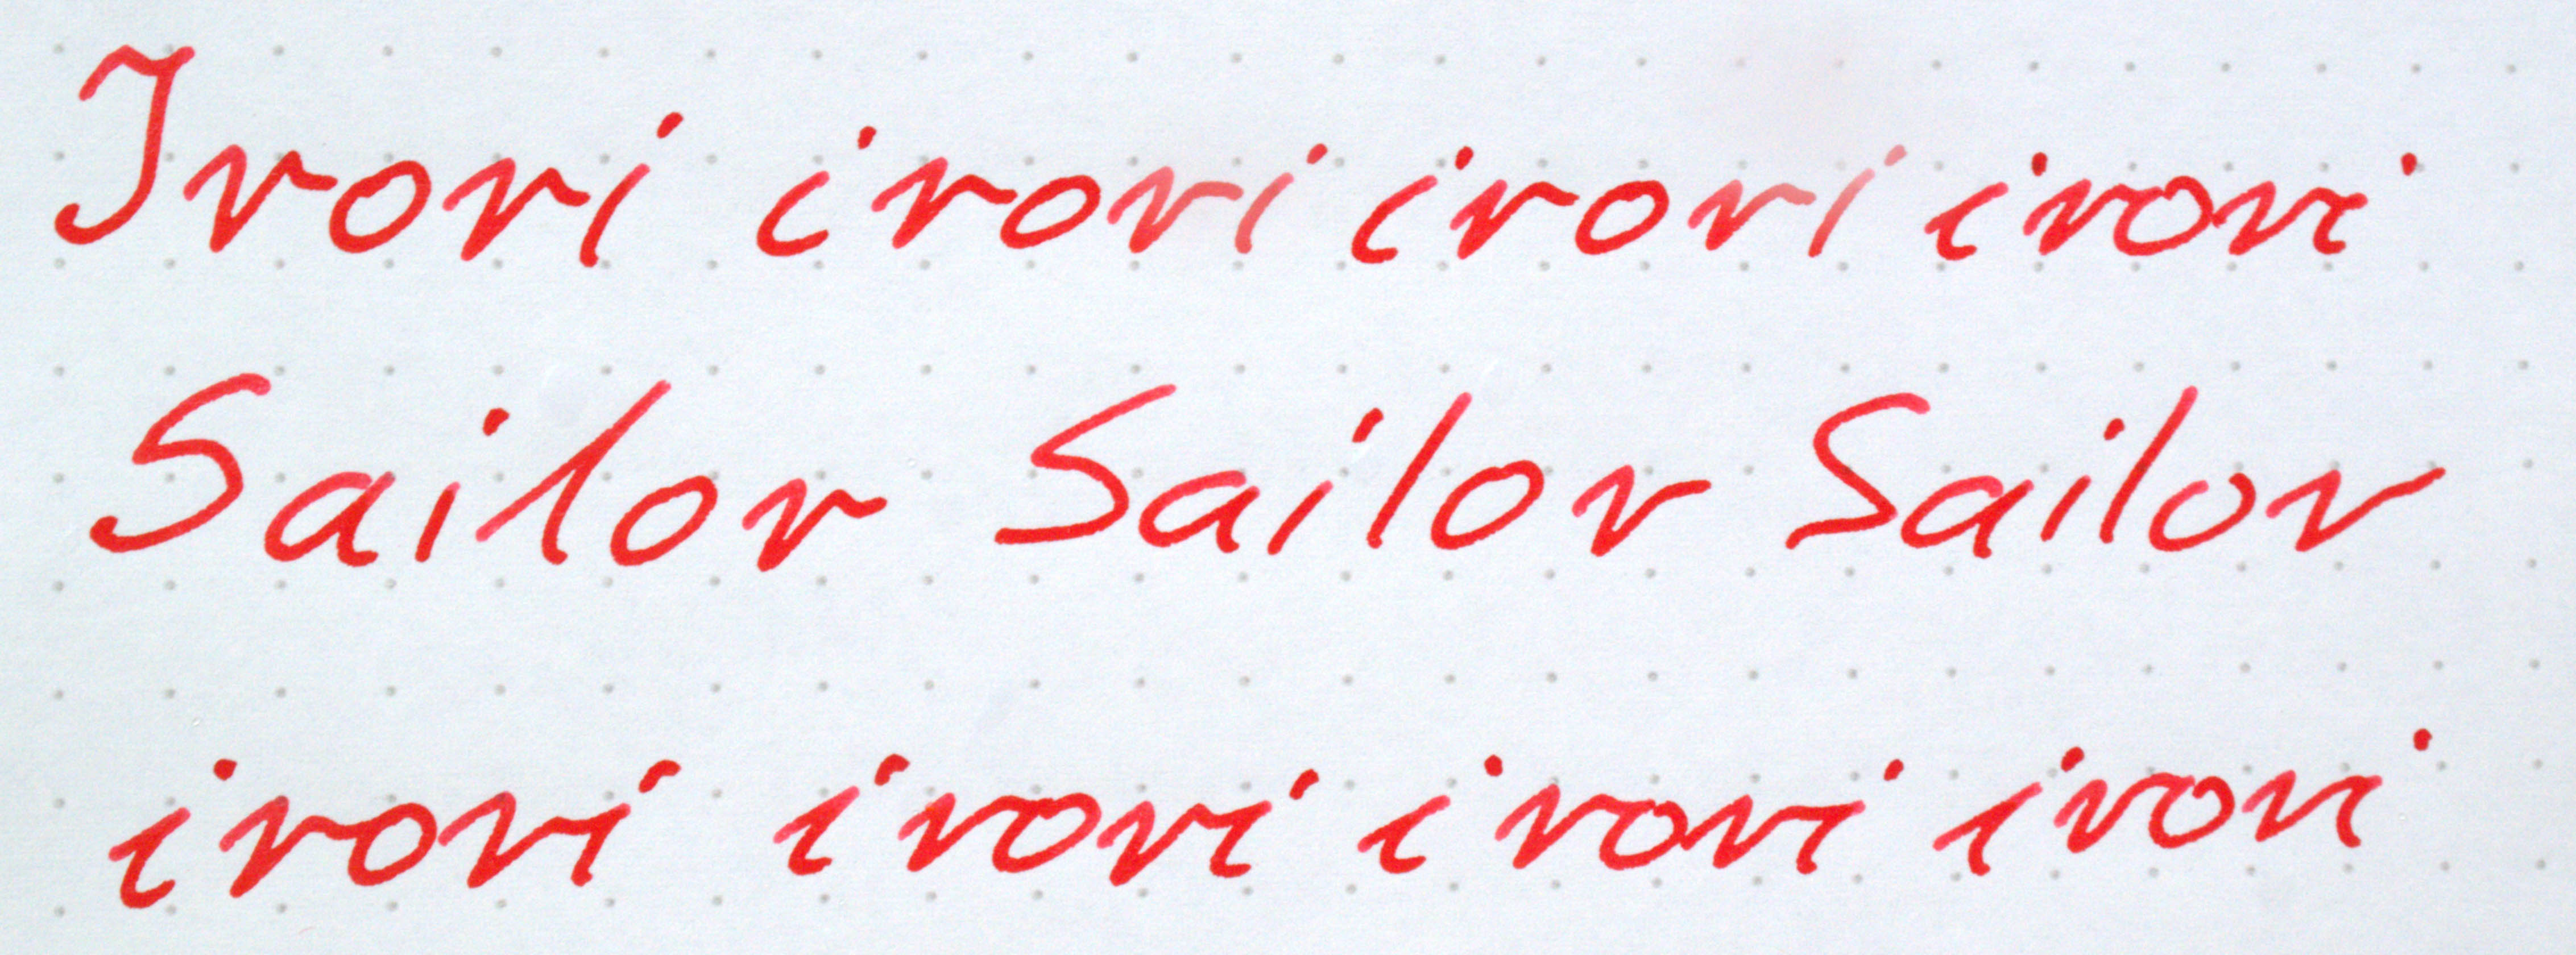 Irori irori irori irori
Sailor Sailor Sailor
irori irori irori irori